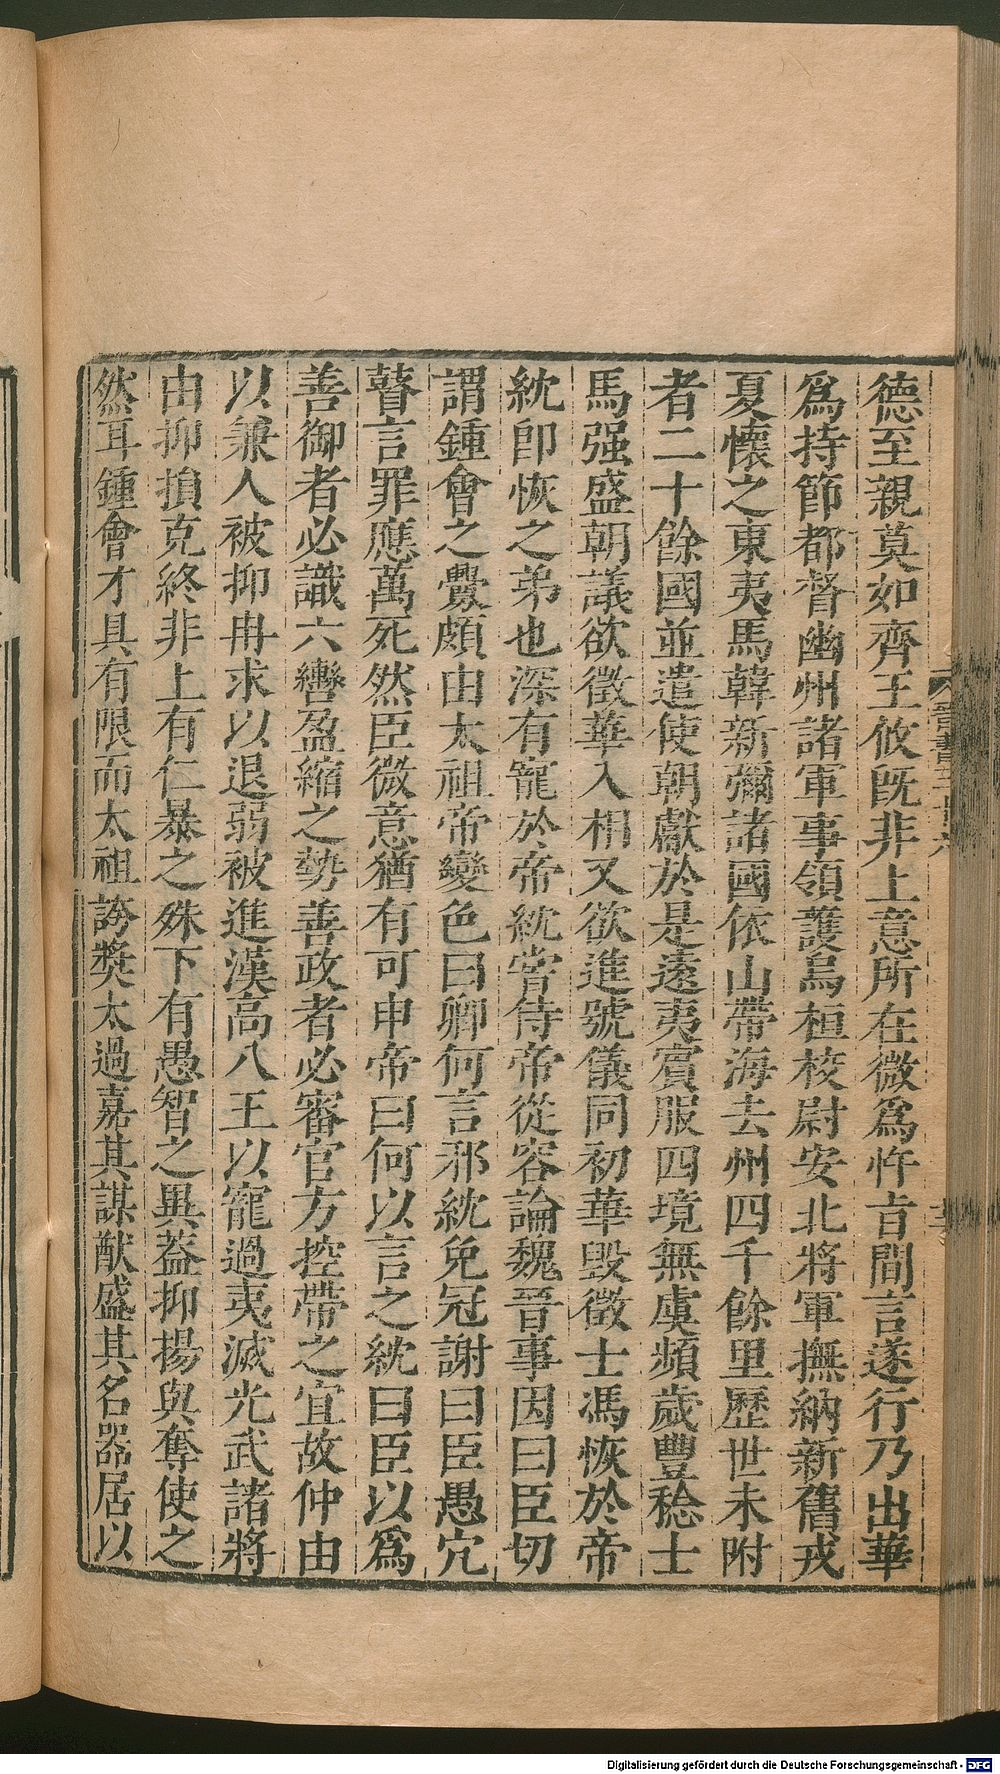 德至親莫如齊王攸旣非上意所在微爲忤㫖間言遂行乃出華
爲持節都督幽州諸軍事領護烏桓校尉安北將軍撫納新舊戎
夏懷之東夷馬韓新彌諸國依山帶海去州四千餘里歷世未附
者二十餘國並遣使朝獻於是遠夷賓服四境無虞頻歲豐稔士
馬强盛朝議欲徵華入相又欲進號儀同初華毀徵士馮恢於帝
紞卽恢之弟也深有寵於帝紞嘗侍帝從容論魏晉事因曰臣切
謂鍾會之釁頗由太祖帝變色曰卿何言邪紞免冠謝曰臣愚冗
瞽言罪應萬死然臣微意猶有可申帝曰何以言之紞曰臣以爲
善御者必識六轡盈縮之勢善政者必審官方控帶之宜故仲由
以兼人被抑冉求以退弱被進漢高八王以寵過夷滅光武諸將
由抑損克終非上有仁暴之殊下有愚智之異蓋抑揚與奪使之
然耳鍾會才具有限而太祖誇奬太過嘉其謀猷盛其名器居以
晉書三十六
Digitalisierung gefördert durch die Deutsche Forschungsgemeinschaft - DFG